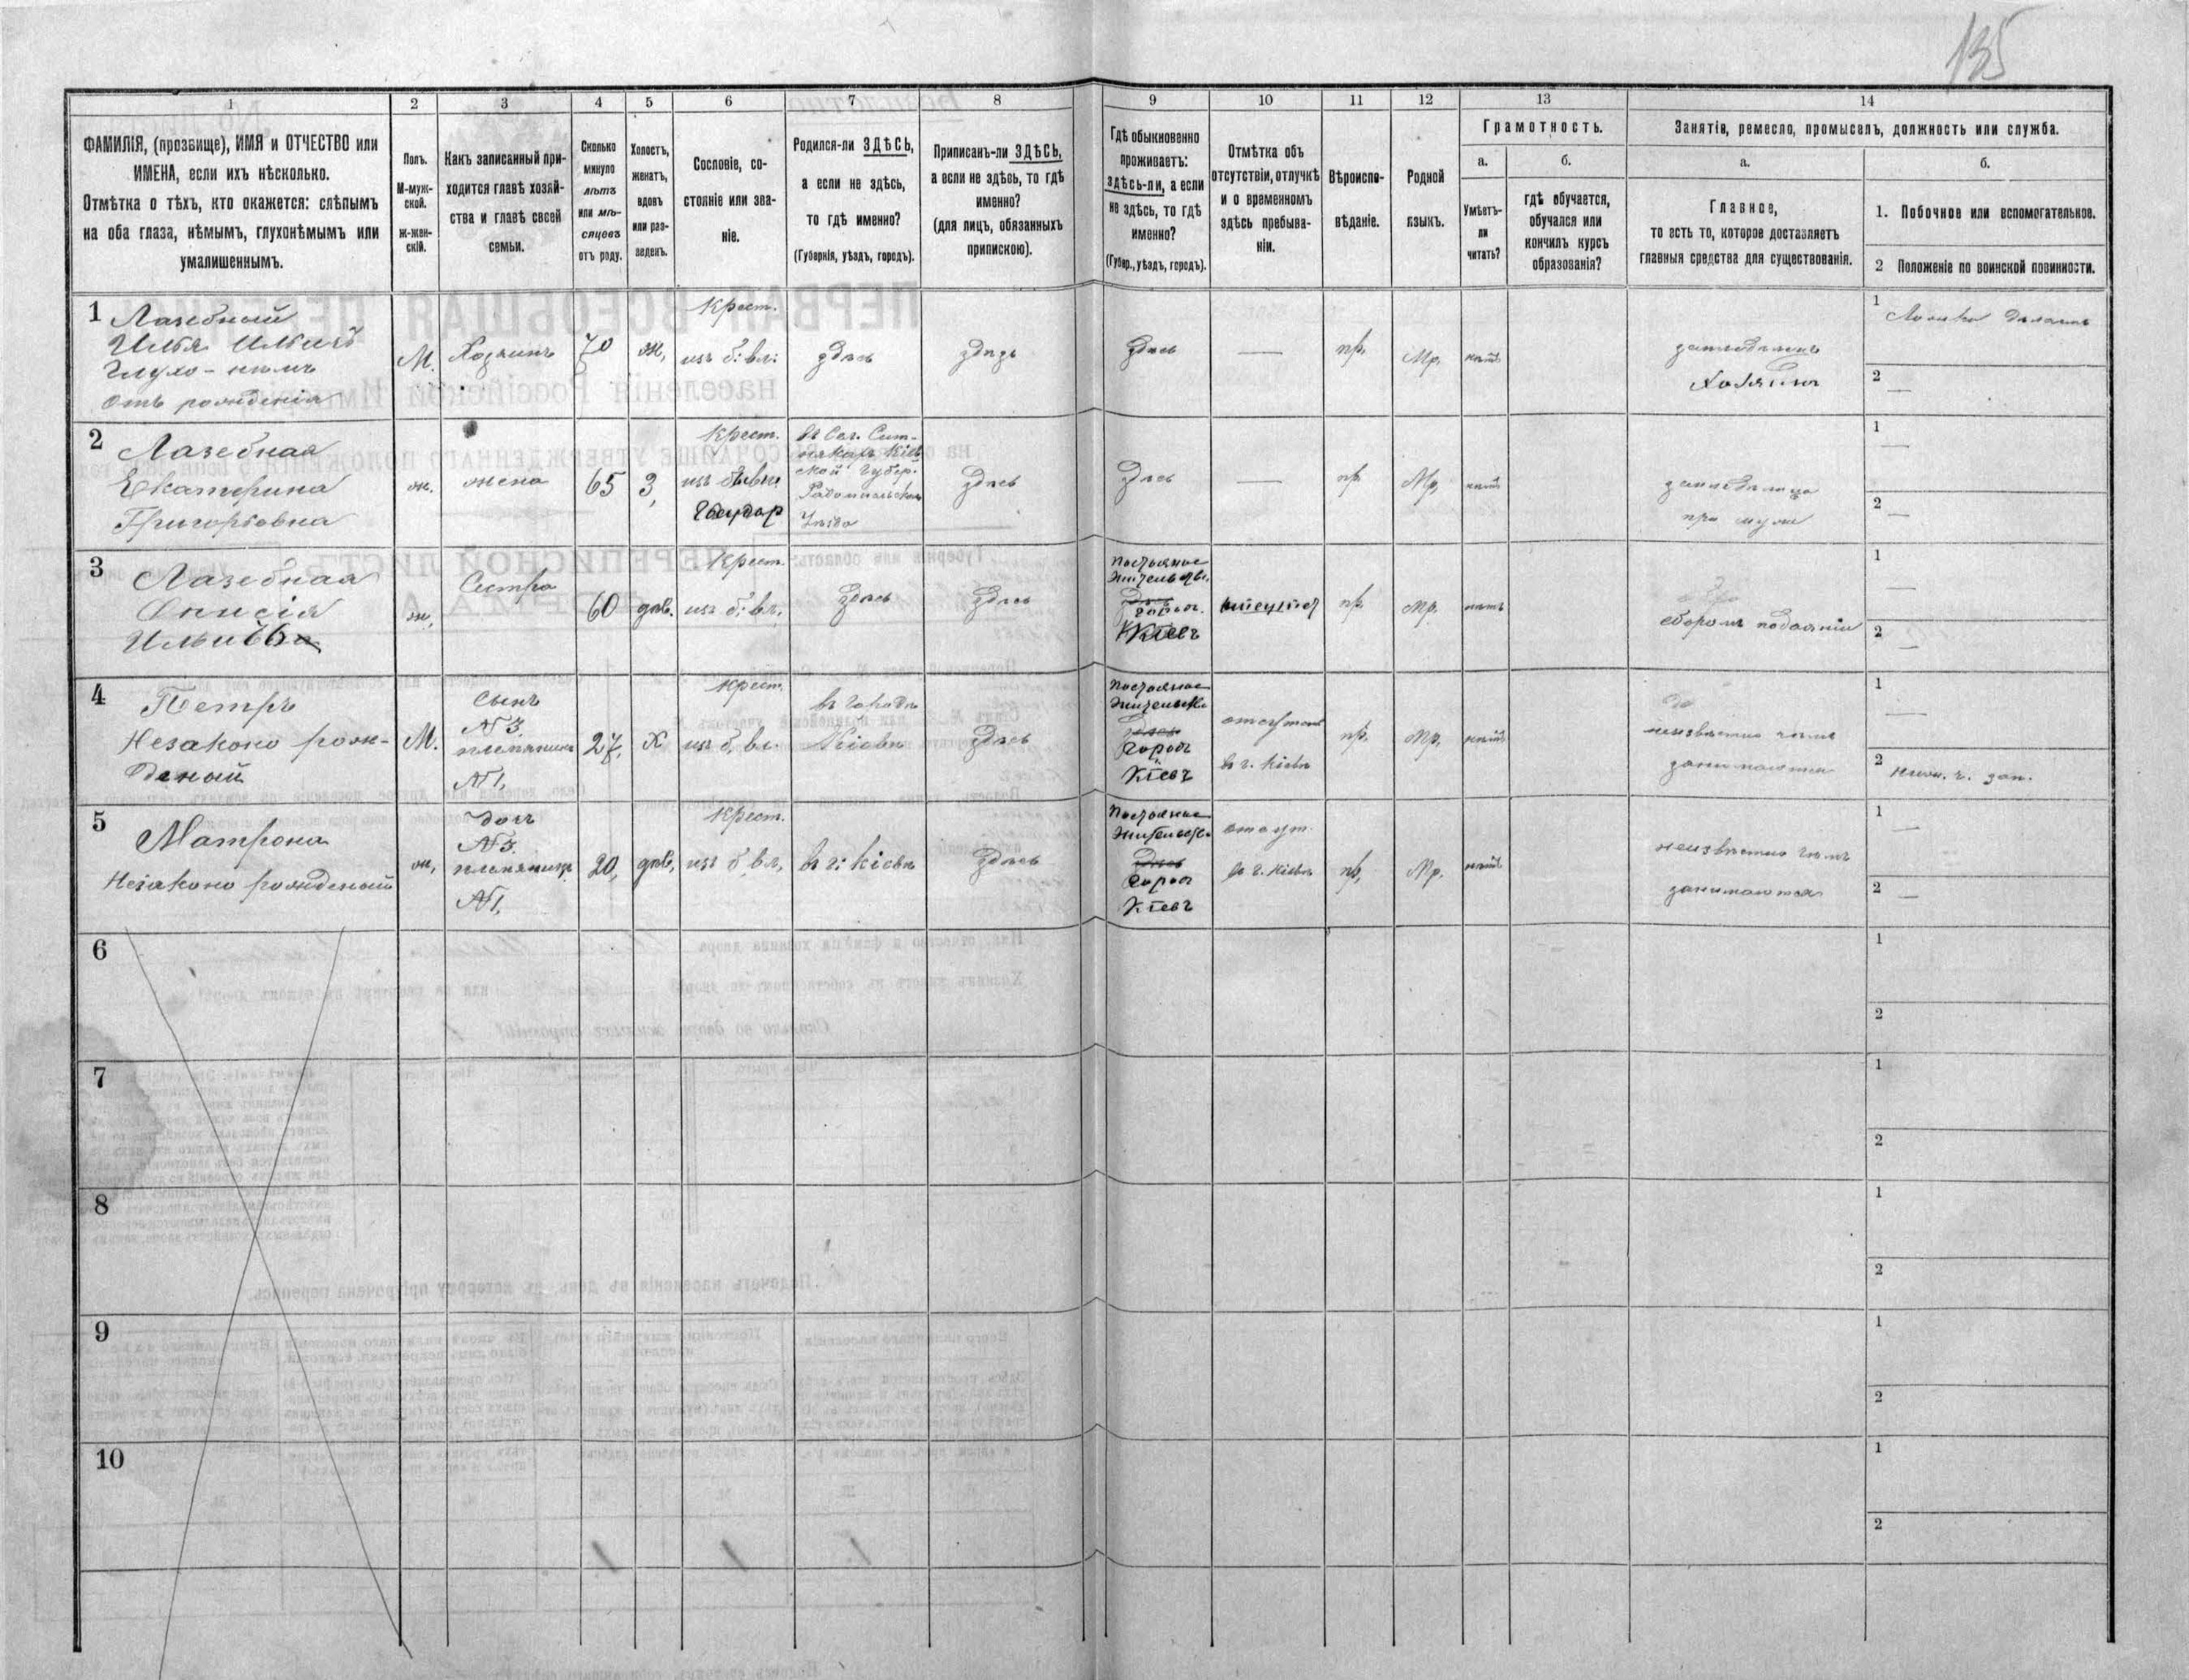 135
1
2
3
4
5
6
7
8
9
10
11
12
13
14
ФАМИЛІЯ, (прозвище), ИМЯ и ОТЧЕСТВО или
ИМЕНА, если ихъ нѣсколько.
Отмѣтка о тѣхъ, кто окажется: слѣпымъ
на оба глаза, нѣмымъ, глухонѣмымъ или
умалишеннымъ.
Полъ.
М-муж-
ской.
Ж-жен-
скій.
Какъ записанный при-
ходится главѣ хозяй-
ства и главѣ своей
семьи.
Сколько
минуло
лѣтъ
или мѣ-
сяцевъ
отъ роду.
Холостъ,
женатъ,
вдовъ
или раз-
веденъ.
Сословіе, со-
стояніе или зва-
ніе.
Родился-ли ЗДѢСЬ,
а если не здѣсь,
то гдѣ именно?
(Губернія, уѣздъ, городъ).
Приписанъ-ли ЗДѢСЬ,
а если не здѣсь, то гдѣ
именно?
(для лицъ, обязанныхъ
припискою).
Гдѣ обыкновенно
проживаетъ:
здѣсь-ли, а если
не здѣсь, то гдѣ
именно?
(Губер., уѣздъ, городъ).
Отмѣтка объ
отсутствіи, отлучкѣ
и о временномъ
здѣсь пребыва-
ніи.
Вѣроиспо-
вѣданіе.
Родной
языкъ.
Грамотность.
а.
б.
Умѣетъ-
ли
читать?
гдѣ обучается,
обучался или
кончилъ курсъ
образованія?
Занятіе, ремесло, промыселъ, должность или служба.
а.
б.
Главное,
то есть то, которое доставляетъ
главныя средства для существованія.
1. Побочное или вспомогательное.
2 Положеніе по воинской повинности.
1 Лазебный
Илья Ильичъ
Глухо-нѣмъ
отъ рожденія
М.
Хозяинъ
70
ж,
Крест.
изъ б: вл:
здѣсь
здѣсь
здѣсь
—
пр,
Мр,
нѣтъ
земледѣлецъ
Хозяинъ
1
2
—
2 Лазебная
Екатерина
Григорьевна
ж.
жена
65
З,
Крест.
изъ бывш.
Государ
въ Сел. Сит-
някахъ Кіев
ской Губер.
Радомысльскаго
Уѣзда
здѣсь
здѣсь
—
пр.
Мр,
нѣтъ
земледѣлица
при мужѣ
1
—
2
—
3 Лазебная
Онисія
Ильична
ж,
Сестра
60
дѣв.
Крест.
изъ б; вл,
здѣсь
здѣсь
Постоянное
Жительство
здѣсь
город.
Кіевъ
пр,
Мр.
нѣтъ
сборомъ подаянія
1
—
2
—
4 Петръ
Незаконо рож-
деный
М.
Сынъ
№3.
племяникъ
№1,
27,
Х
крест.
изъ б, вл.
въ городѣ
Кіевѣ
здѣсь
Постоянное
Жительство
здѣсь
Городъ
Кіевъ
отсутств
въ г. Кіевѣ
пр,
Мр,
нѣтъ
неизвѣстно чемъ
занимается
1
—
2 неизв. ч. зан.
5 Матрона
Незаконо рожденый
ж,
Доч
№3.
племяниц.
№1,
20,
дѣв,
Крест.
изъ б, вл,
въ г: Кіевѣ
здѣсь
Постоянное
Жительство
здѣсь
Город
Кіевъ
отсут.
въ г. Кіевѣ
пр,
Мр,
нѣтъ
неизвѣстно чемъ
занимается
1
—
2
—
6
1
2
7
1
2
8
1
2
9
1
2
10
1
2